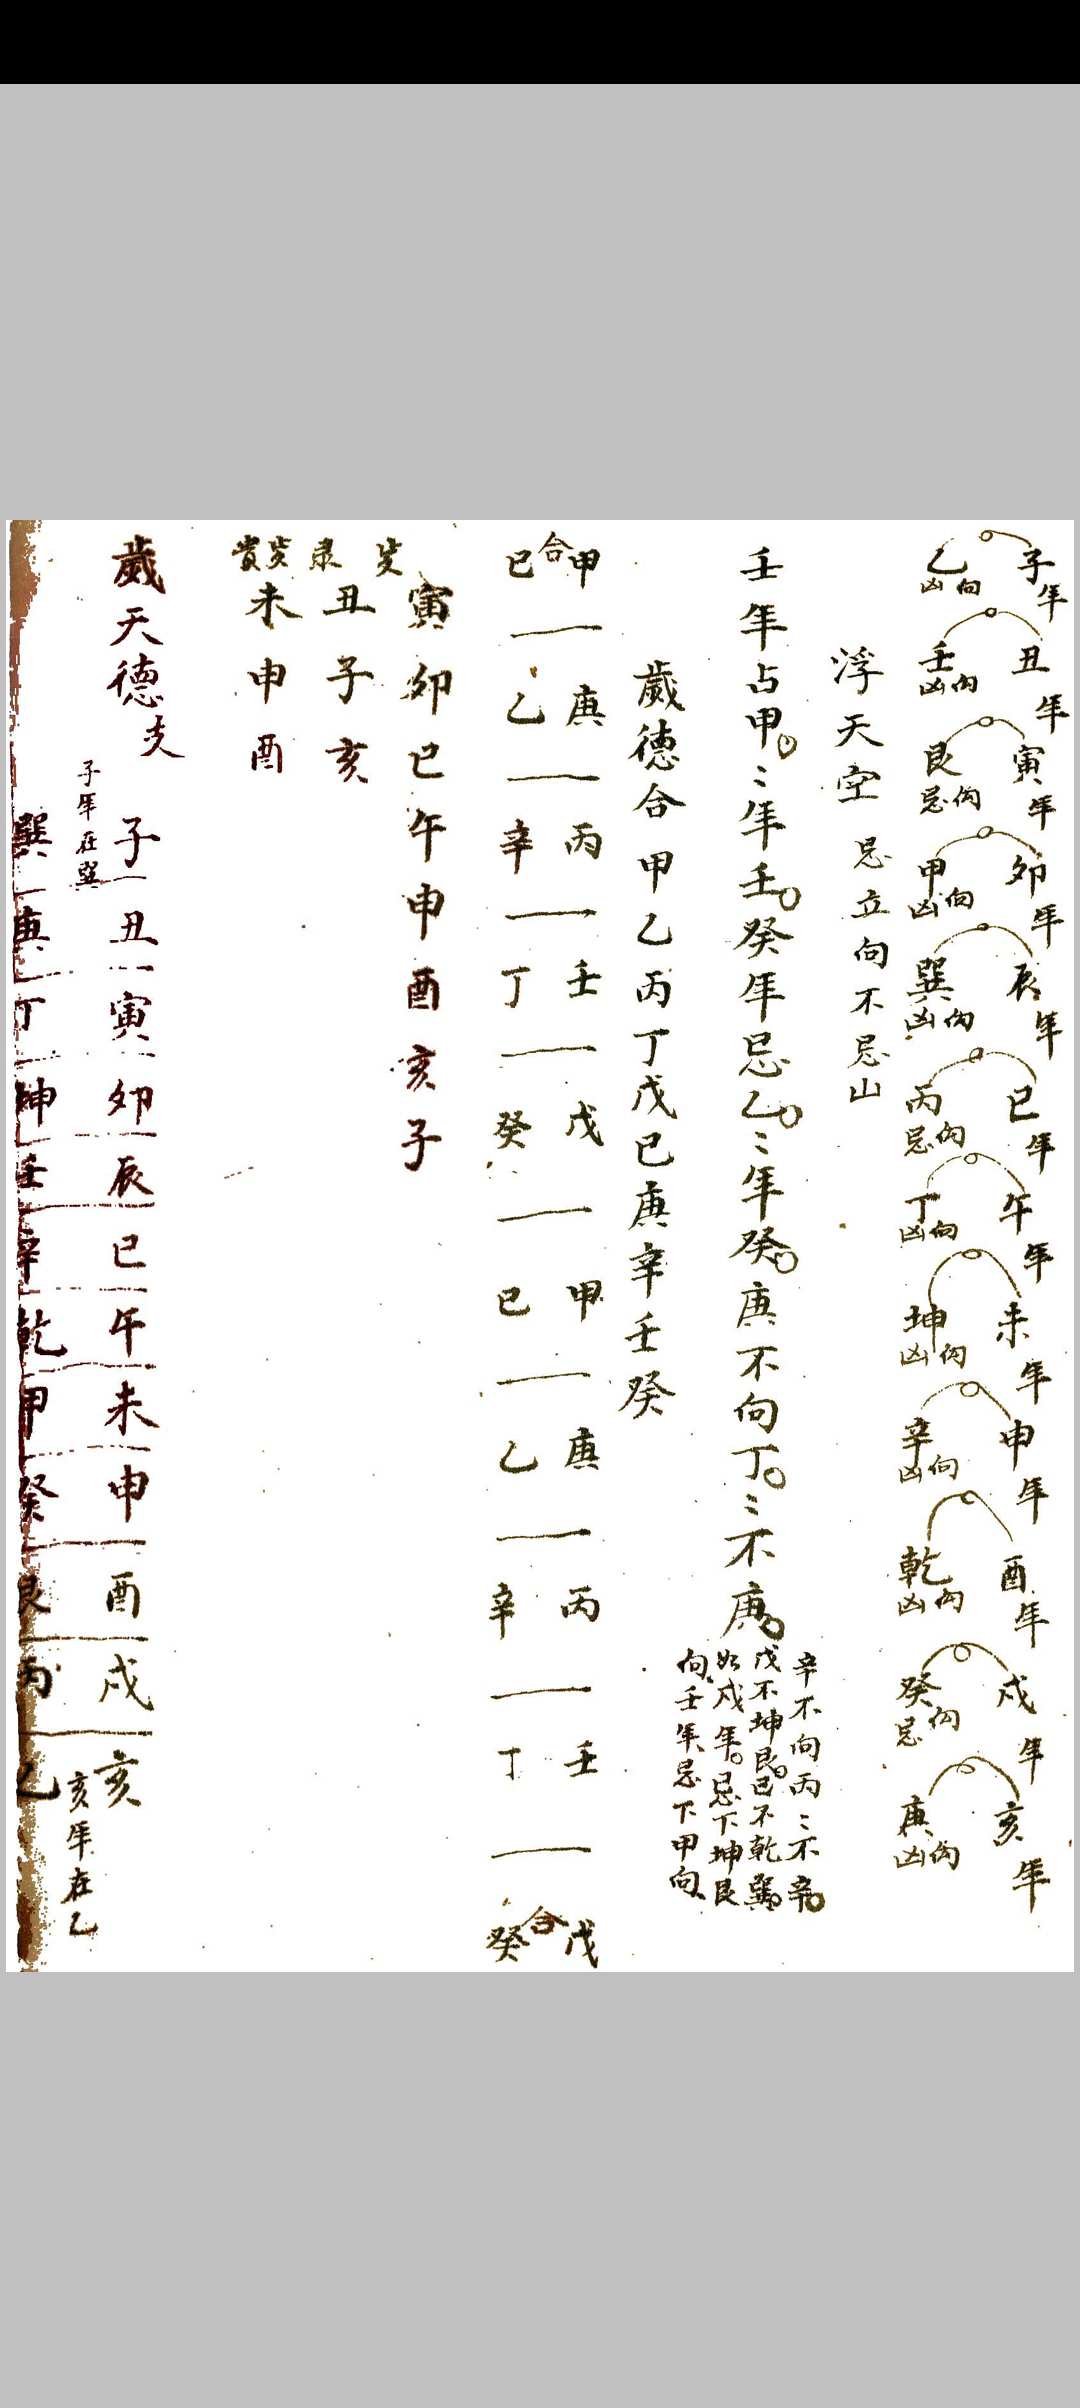 子年 乙向凶
丑年 壬向凶
寅年 艮向忌
卯年 甲向凶
辰年 巽向凶
巳年 丙向忌
午年 丁向凶
未年 坤向凶
申年 辛向凶
酉年 乾向凶
戍年 癸向忌
亥年 庚向凶
浮天空 忌立向不忌山
壬年占甲。〻年壬。癸年忌乙。〻年癸。庚不向丁。〻不庚。
辛不向丙〻不辛。
戊不坤艮。己不乾巽。
如戍年。忌下坤艮
向、壬年忌下甲向、
歲德合 甲乙丙丁戊己庚辛壬癸
甲 庚 丙 壬 戊 甲 庚 丙 壬 戊
合 合
己 乙 辛 丁 癸 己 乙 辛 丁 癸
寅卯巳午申酉亥子
歲
录 丑子亥
歲貴 未申酉
歲天德支 子丑寅卯辰巳午未申酉戍亥
子年在巽
亥年在乙
巽庚丁坤壬辛乾甲癸艮丙乙